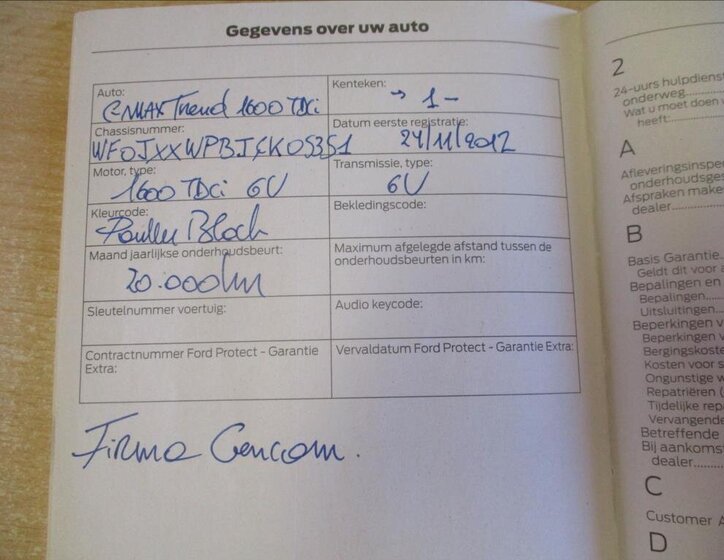 Gegevens over uw auto
Auto:
CMAX Trend 1600 TDCi
Kenteken:
→ 1-
Chassisnummer:
WF0JXXWPBJCK05351
Datum eerste registratie:
24/11/2012
Motor, type:
1600 TDCi 6V
Transmissie, type:
6V
Kleurcode:
Black
Bekledingscode:
Maand jaarlijkse onderhoudsbeurt:
20.000km
Maximum afgelegde afstand tussen de
onderhoudsbeurten in km:
Sleutelnummer voertuig:
Audio keycode:
Contractnummer Ford Protect - Garantie
Extra:
Vervaldatum Ford Protect - Garantie Extra:
Firma Cencom.
2
24-uurs hulpdienst
onderweg
Wat u moet doen
heeft:
A
Afleveringsinspe
onderhoudsges
Afspraken make
dealer
B
Basis Garantie
Geldt dit voor a
Bepalingen en
Bepalingen
Uitsluitingen
Beperkingen v
Beperkingen v
Bergingskoste
Kosten voor s
Ongunstige w
Repatriëren (
Tijdelijke rep
Vervangende
Betreffende
Bij aankoms
dealer
C
Customer A
D